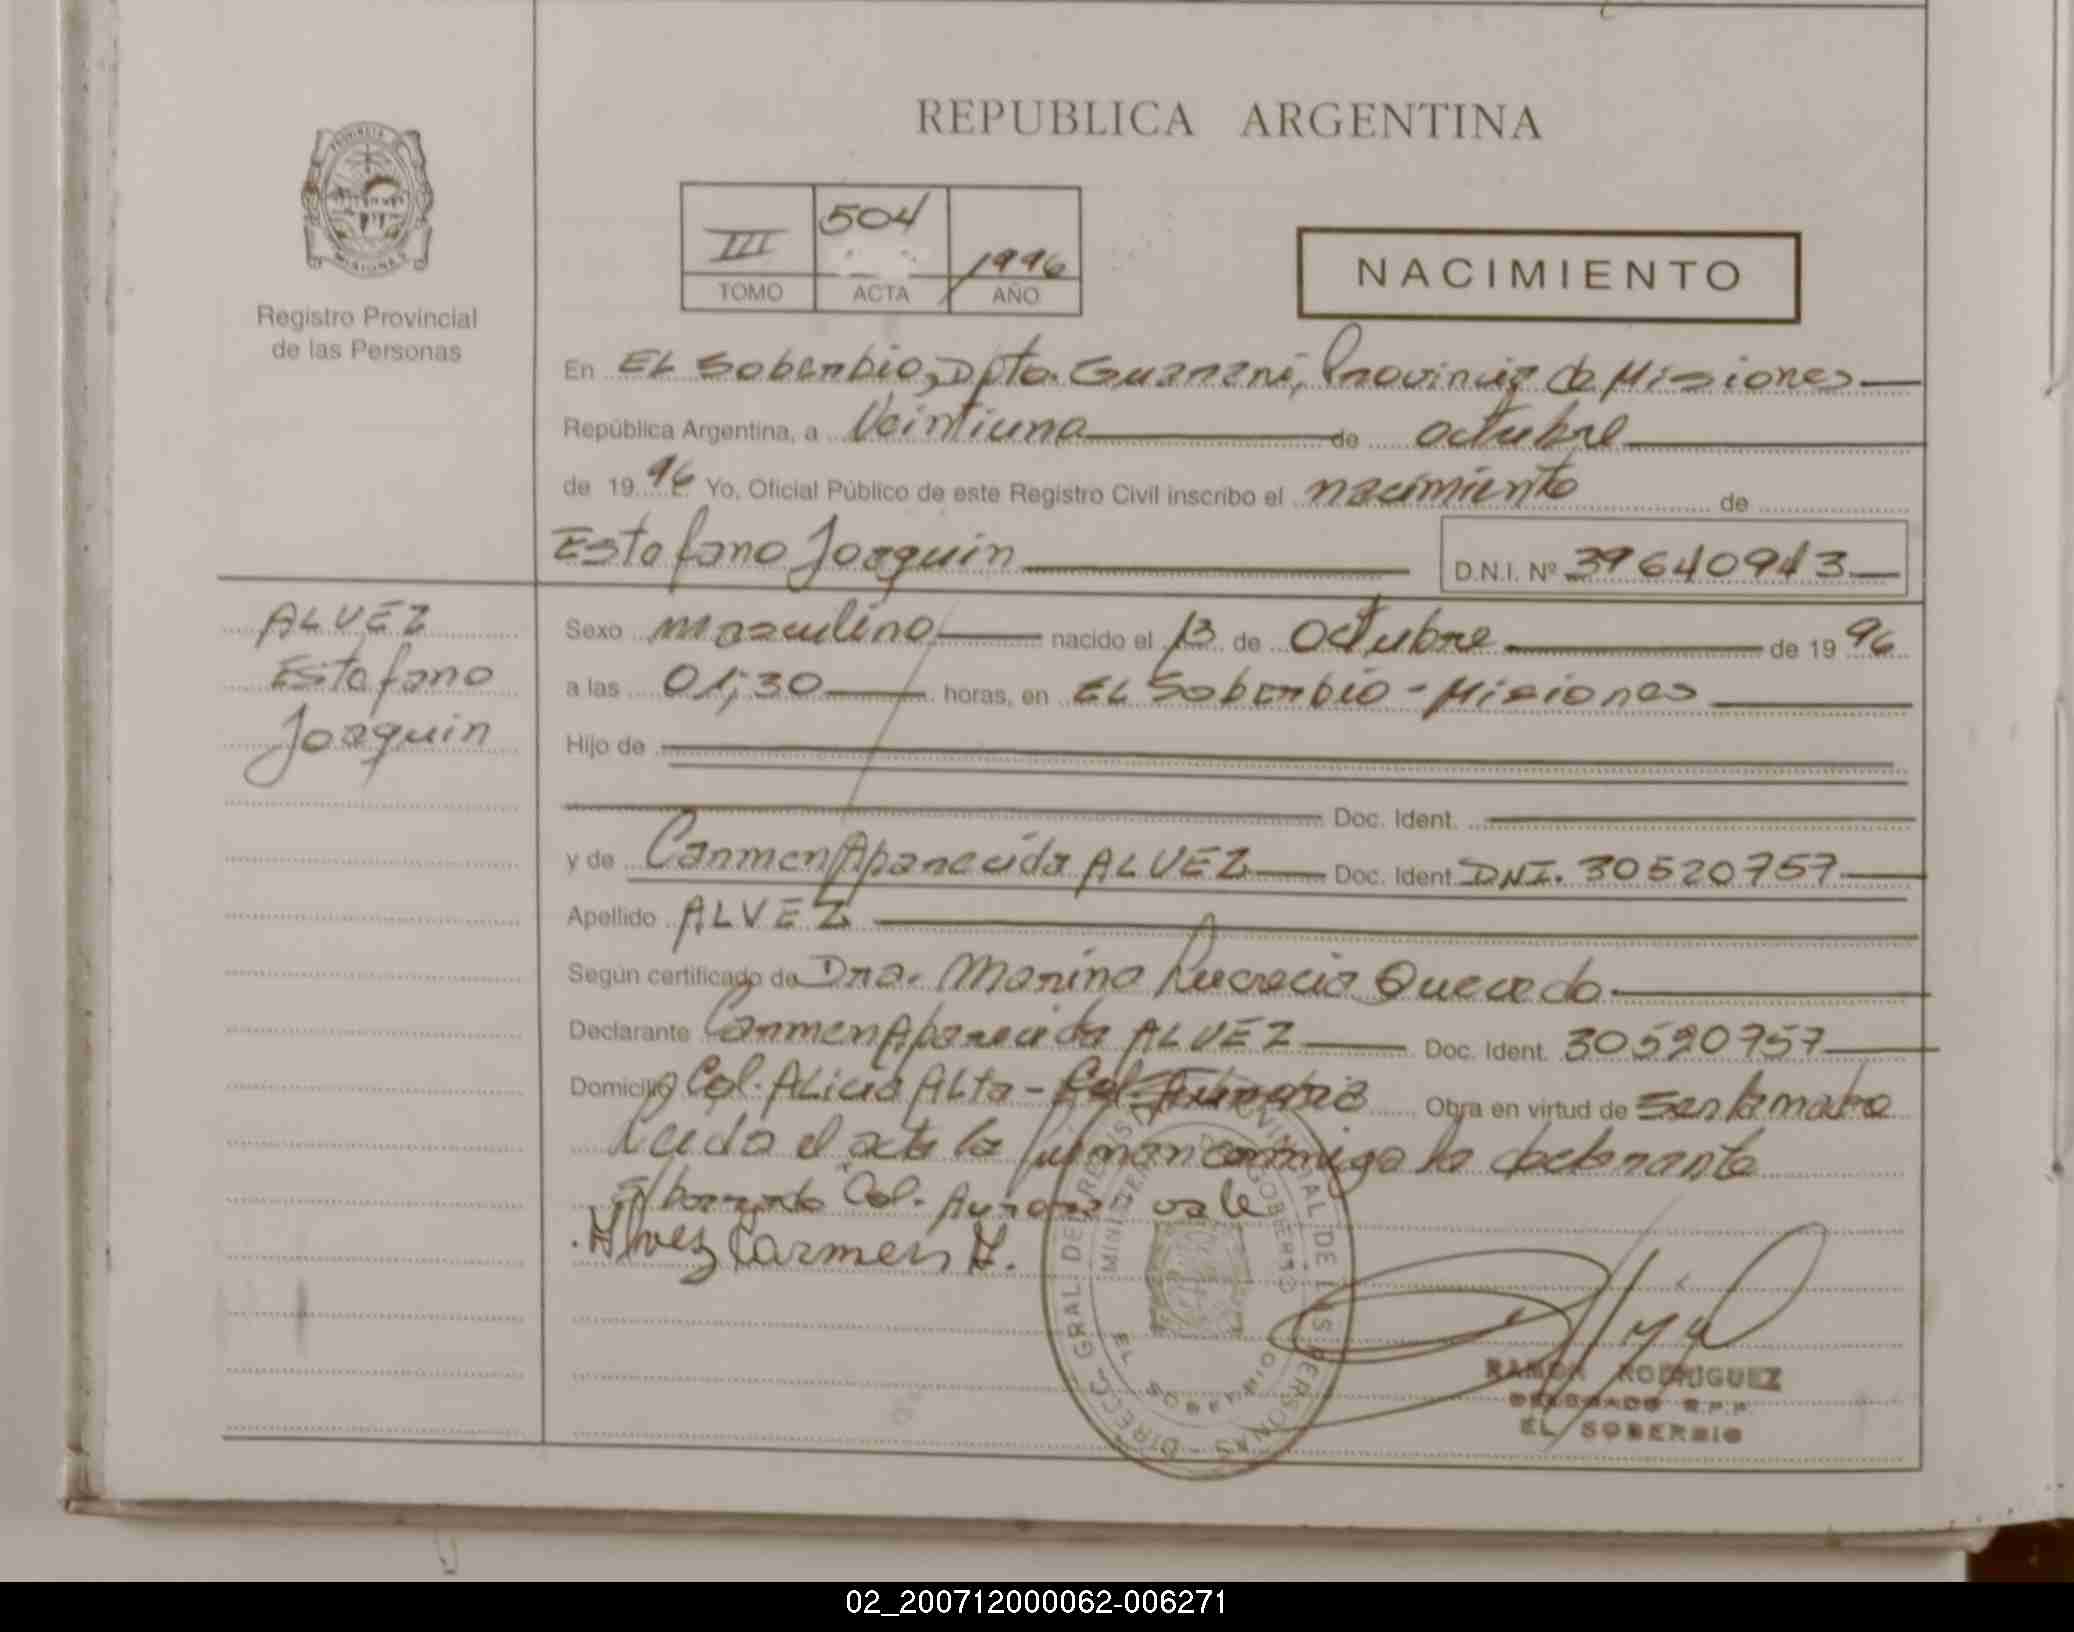 REPUBLICA ARGENTINA
PROVINCIA
MISIONES
Registro Provincial
de las Personas
III 504 1996
TOMO ACTA AÑO
NACIMIENTO
En EL Soberbio, Dpto. Guarani, Provincia de Misiones
República Argentina, a Veintiuno de octubre
de 1996 Yo, Oficial Público de este Registro Civil inscribo el nacimiento de
Estefano Joaquin D.N.I. Nº 39640943
ALVEZ
Estefano
Joaquin
Sexo masculino nacido el 13 de Octubre de 1996
a las 01,30 horas, en EL Soberbio - Misiones
Hijo de
Doc. Ident.
y de Carmen Aparecida ALVEZ Doc. Ident. DNI. 30520757
Apellido ALVEZ
Según certificado de Dra. Marina Lucrecia Quevedo
Declarante Carmen Aparecida ALVEZ Doc. Ident. 30520757
Domicilio Col. ALicia ALta - Obra en virtud de Ser la madre
Leida el acta la firman conmigo la declarante
Col. Aurora vale
Alvez Carmen A.
DIRECC. GRAL DEL REGISTRO PROVINCIAL DE LAS PERSONAS
EL SOBERBIO
RAMON RODRIGUEZ
DELEGADO R.P.P.
EL SOBERBIO
02_200712000062-006271